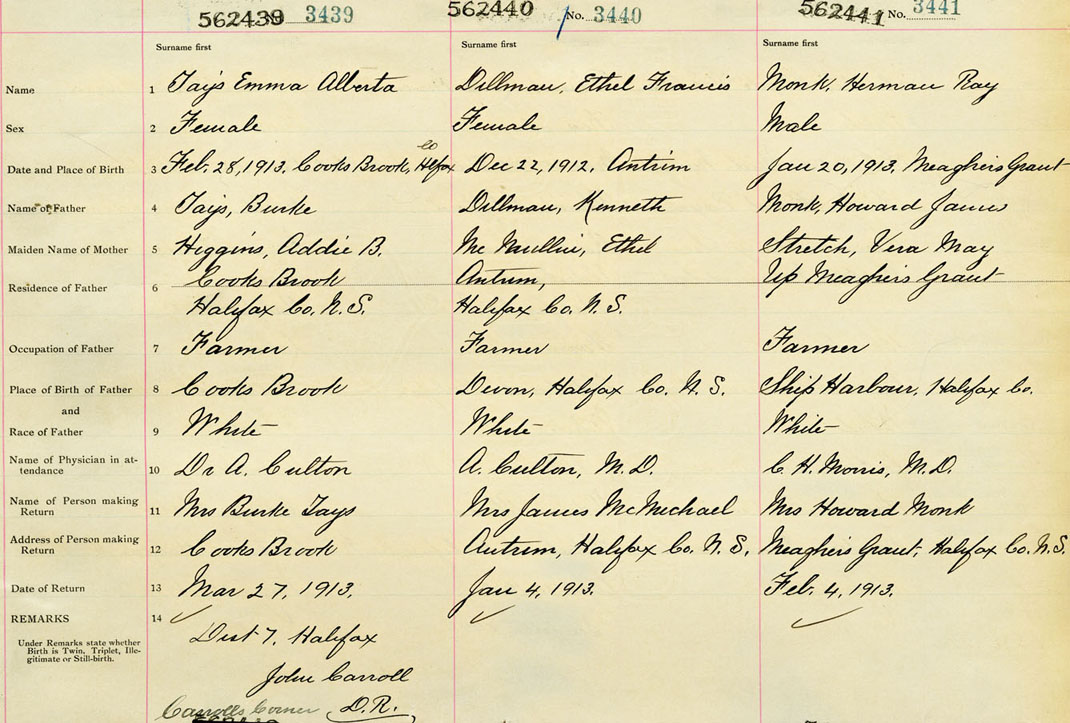 562439 3439 562440 No. 3440 562441 No. 3441
Surname first Surname first Surname first
Name 1 Tays Emma Alberta Dillman, Ethel Francis Monk, Herman Ray
Sex 2 Female Female Male
Date and Place of Birth 3 Feb. 28, 1913. Cooks Brook, Hlfax Co Dec 22, 1912, Antrim Jan 20, 1913, Meaghers Grant
Name of Father 4 Tays, Burke Dillman, Kenneth Monk, Howard James
Maiden Name of Mother 5 Higgins, Addie B. Mc Mullin, Ethel Stretch, Vera May
Residence of Father 6 Cooks Brook Antrim, Up Meaghers Grant
Halifax Co. N.S. Halifax Co. N.S.
Occupation of Father 7 Farmer Farmer Farmer
Place of Birth of Father 8 Cooks Brook Devon, Halifax Co. N.S. Ship Harbour, Halifax Co.
and
Race of Father 9 White White White
Name of Physician in at-
tendance 10 Dr A. Culton A. Culton, M.D. C. H. Morris, M.D.
Name of Person making
Return 11 Mrs Burke Tays Mrs James McMichael Mrs Howard Monk
Address of Person making
Return 12 Cooks Brook Antrim, Halifax Co. N.S. Meaghers Grant, Halifax Co. N.S.
Date of Return 13 Mar 27, 1913. Jan 4, 1913. Feb. 4, 1913.
REMARKS 14
Under Remarks state whether
Birth is Twin, Triplet, Ille-
gitimate or Still-birth.
Dist 7, Halifax
John Carroll
Carrolls Corner D.R.